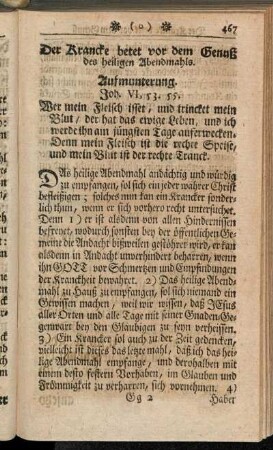 (o) 467
Der Krancke betet vor dem Genuß
des heiligen Abendmahls.
Aufmunterung.
Joh. VI. 53. 55.
Wer mein Fleisch isset, und trincket mein
Blut, der hat das ewige Leben, und ich
werde ihn am jüngsten Tage auferwecken.
Denn mein Fleisch ist die rechte Speise,
und mein Blut ist der rechte Tranck.
DAs heilige Abendmahl andächtig und würdig
zu empfangen, sol sich ein jeder wahrer Christ
befleißigen; solches nun kan ein Krancker sonder-
lich thun, wenn er sich vorhero recht untersuchet.
Denn 1) er ist alsdenn von allen Hindernissen
befreyet, wodurch sonsten bey der öffentlichen Ge-
meine die Andacht bißweilen gestöhret wird, er kan
alsdenn in Andacht unverhindert beharren, wenn
ihn GOTT vor Schmertzen und Empfindungen
der Kranckheit bewahret. 2) Das heilige Abend-
mahl zu Hauß zu empfangen, sol sich niemand ein
Gewissen machen, weil wir wissen, daß JEsus
aller Orten und alle Tage mit seiner Gnaden-Ge-
genwart bey den Gläubigen zu seyn verheissen.
3) Ein Krancker sol auch zu der Zeit gedencken,
vielleicht ist dieses das letzte mahl, daß ich das hei-
lige Abendmahl empfange, und derohalben mit
einem desto festern Vorhaben, im Glauben und
Frömmigkeit zu verharren, sich vornehmen. 4)
Gg 2 Haber